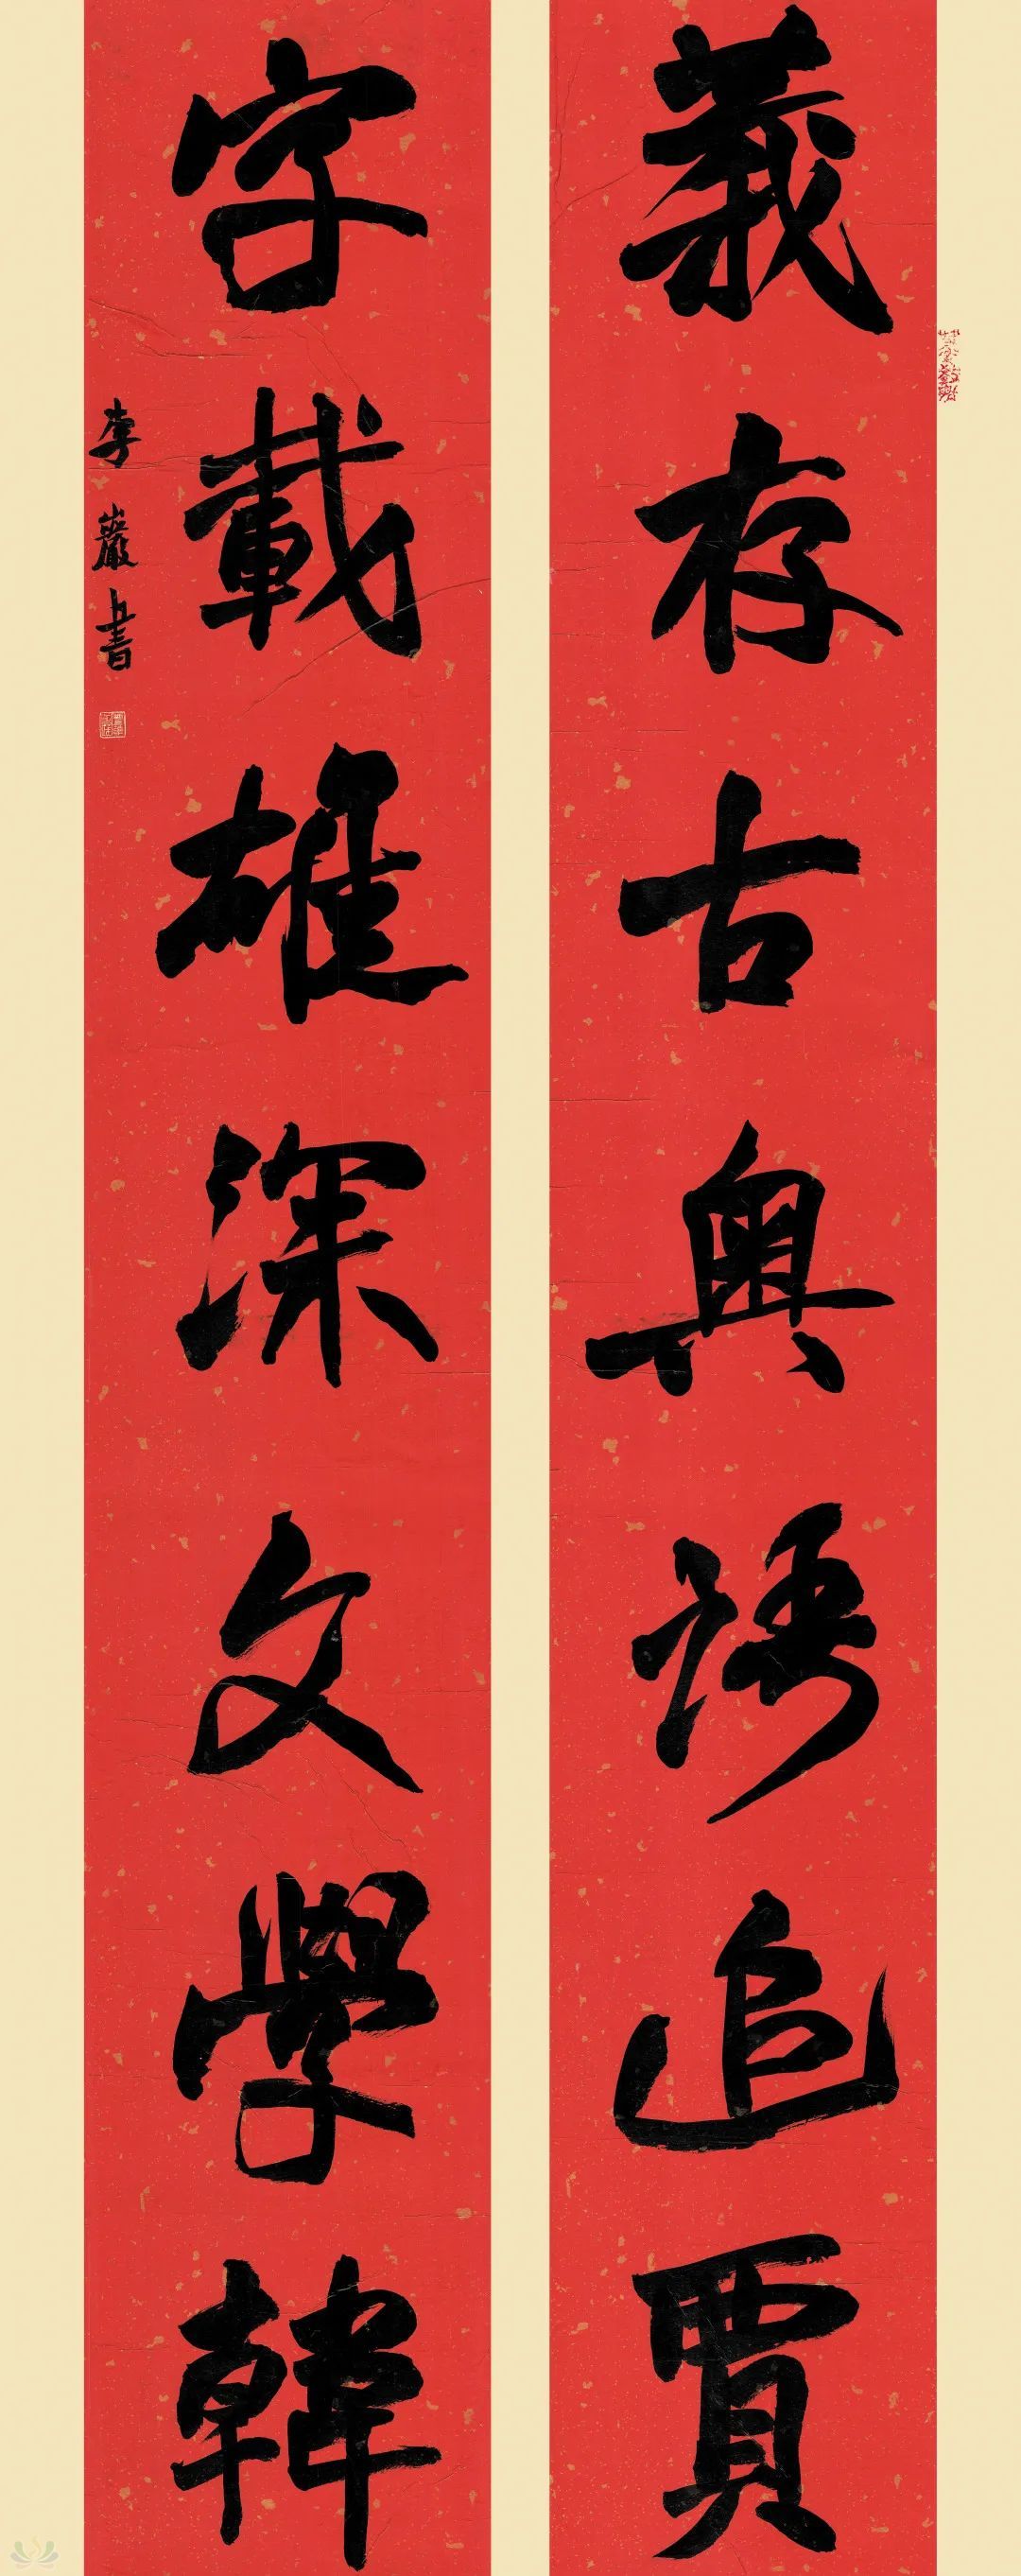 義存古奥語追賈
字載雄深文學韓
李巖書